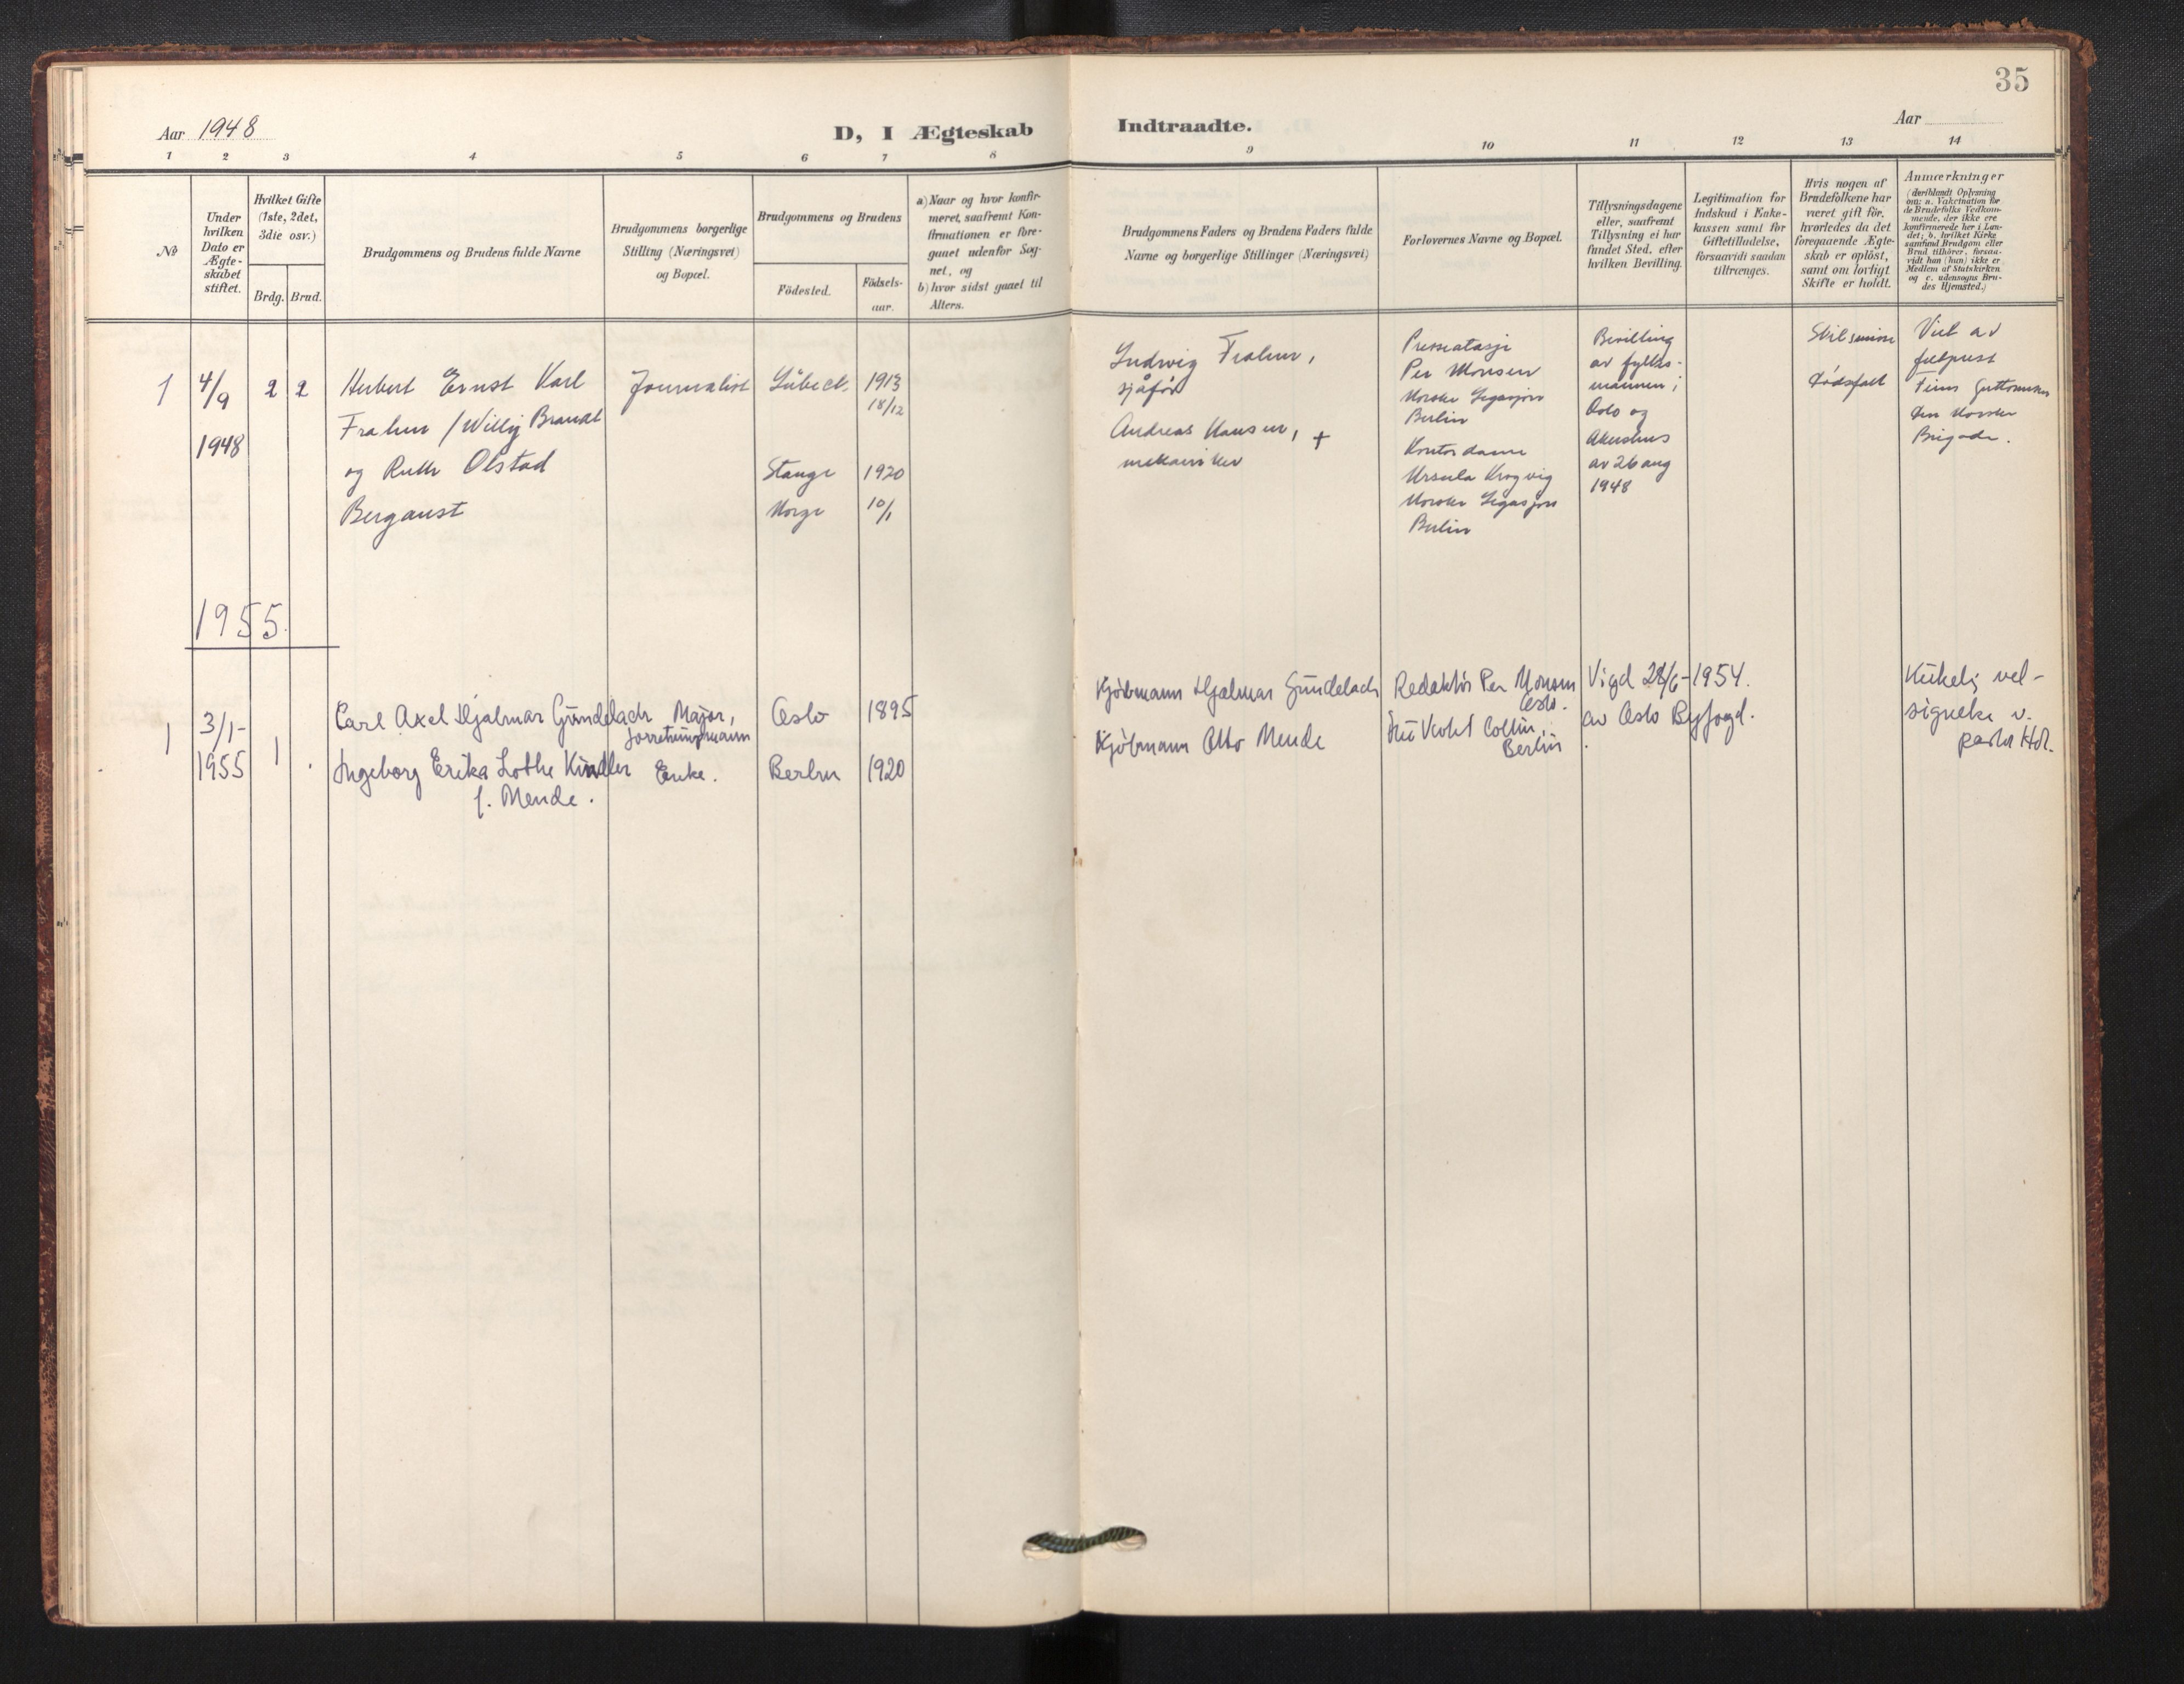 35
Aar 1948
D, I Ægteskab Indtraadte.
Aar
1 2 3 4 5 6 7 8 9 10 11 12 13 14
No
Under
hvilken
Dato er
Ægte-
skabet
stiftet.
Hvilket Gifte
(1ste, 2det,
3die osv.)
Brdg. Brud.
Brudgommens og Brudens fulde Navne
Brudgommens borgerlige
Stilling (Næringsvei)
og Bopæl.
Brudgommens og Brudens
Födested.
Födsels-
aar.
a) Naar og hvor konfir-
meret, saafremt Kon-
firmationen er fore-
gaaet udenfor Sog-
net, og
b) hvor sidst gaaet til
Alters.
Brudgommens Faders og Brudens Faders fulde
Navne og borgerlige Stillinger (Næringsvei)
Forlovernes Navne og Bopæl.
Tillysningsdagene
eller, saafremt
Tillysning ei har
fundet Sted, efter
hvilken Bevilling.
Legitimation for
Indskud i Enke-
kassen samt for
Giftetilladelse,
forsaavidt saadan
tiltrænges.
Hvis nogen af
Brudefolkene har
været gift för,
hvorledes da det
foregaaende Ægte-
skab er oplöst,
samt om lovligt
Skifte er holdt.
Anmærkninger
(deriblandt Oplysning
om: a. Vakcination for
de Brudefolks Vedkom-
mende, der ikke ere
konfirmerede her i Lan-
det; b. hvilket Kirke
samfund Brudgom eller
Brud tilhörer, forsaa-
vidt han (hun) ikke er
Medlem af Statskirken
og c. udensogns Bru-
des Hjemsted.)
1
4/9
1948
2 2
Herbert Ernst Karl
Frahm /Willy Brandt
og Ruth Olstad
Bergaust
Journalist
Lübeck
1913
18/12
Stange
Norge
1920
10/1
Ludwig Frahm,
sjåfør
Andreas Hansen, +
mekaniker
Presseatasje
Per Monsen
Norske Legasjon
Berlin
Kontordame
Ursula Krogvig
Norske Legasjon
Berlin
Bevilling
av fylkes-
mannen i
Oslo og
Akershus
av 26 aug
1948
Skilsmisse
Dødsfall
Viet av
feltprest
Finn
den Norske
Brigade.
1955.
1
3/1-
1955
1
Carl Axel Hjalmar Gundelach
Ingeborg Erika Lothe Kindler
f. Mende.
Major,
forretningsmann
Enke.
Oslo
1895
Berlin
1920
Kjøbmann Hjalmar Gundelach
Kjøbmann Otto Mende
Redaktør Per Monsen
Oslo.
Collin,
Berlin
Vigd 28/6-1954.
av Oslo Byfogd.
Kirkelig vel-
signelse v.